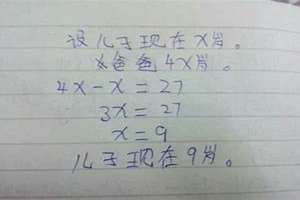 设儿子现在x岁。
爸爸4x岁。
4x-x=27
3x=27
x=9
儿子现在9岁。